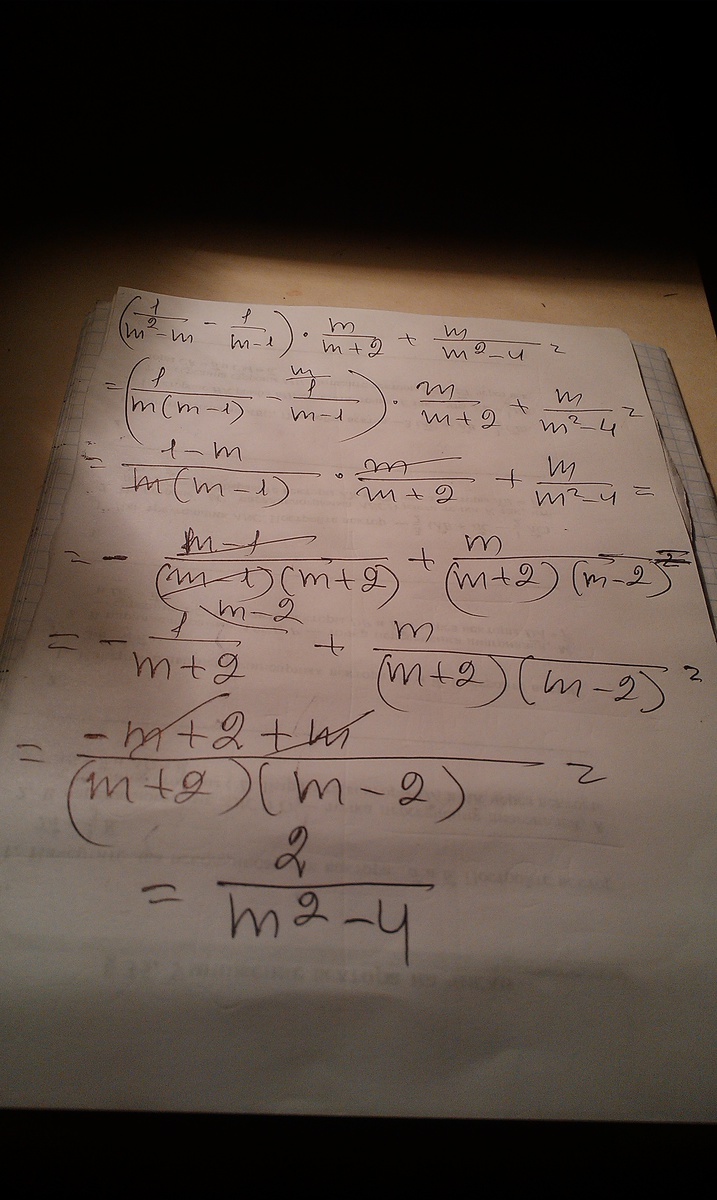 (1/(m²-m) - 1/(m-1)) · m/(m+2) + m/(m²-4) =
= (1/(m(m-1)) - 1/(m-1)) · m/(m+2) + m/(m²-4) =
= (1-m)/(m(m-1)) · m/(m+2) + m/(m²-4) =
= - (m-1)/((m-1)(m+2)) + m/((m+2)(m-2)) =
= - 1/(m+2) + m/((m+2)(m-2)) =
= (-m+2+m)/((m+2)(m-2)) =
= 2/(m²-4)